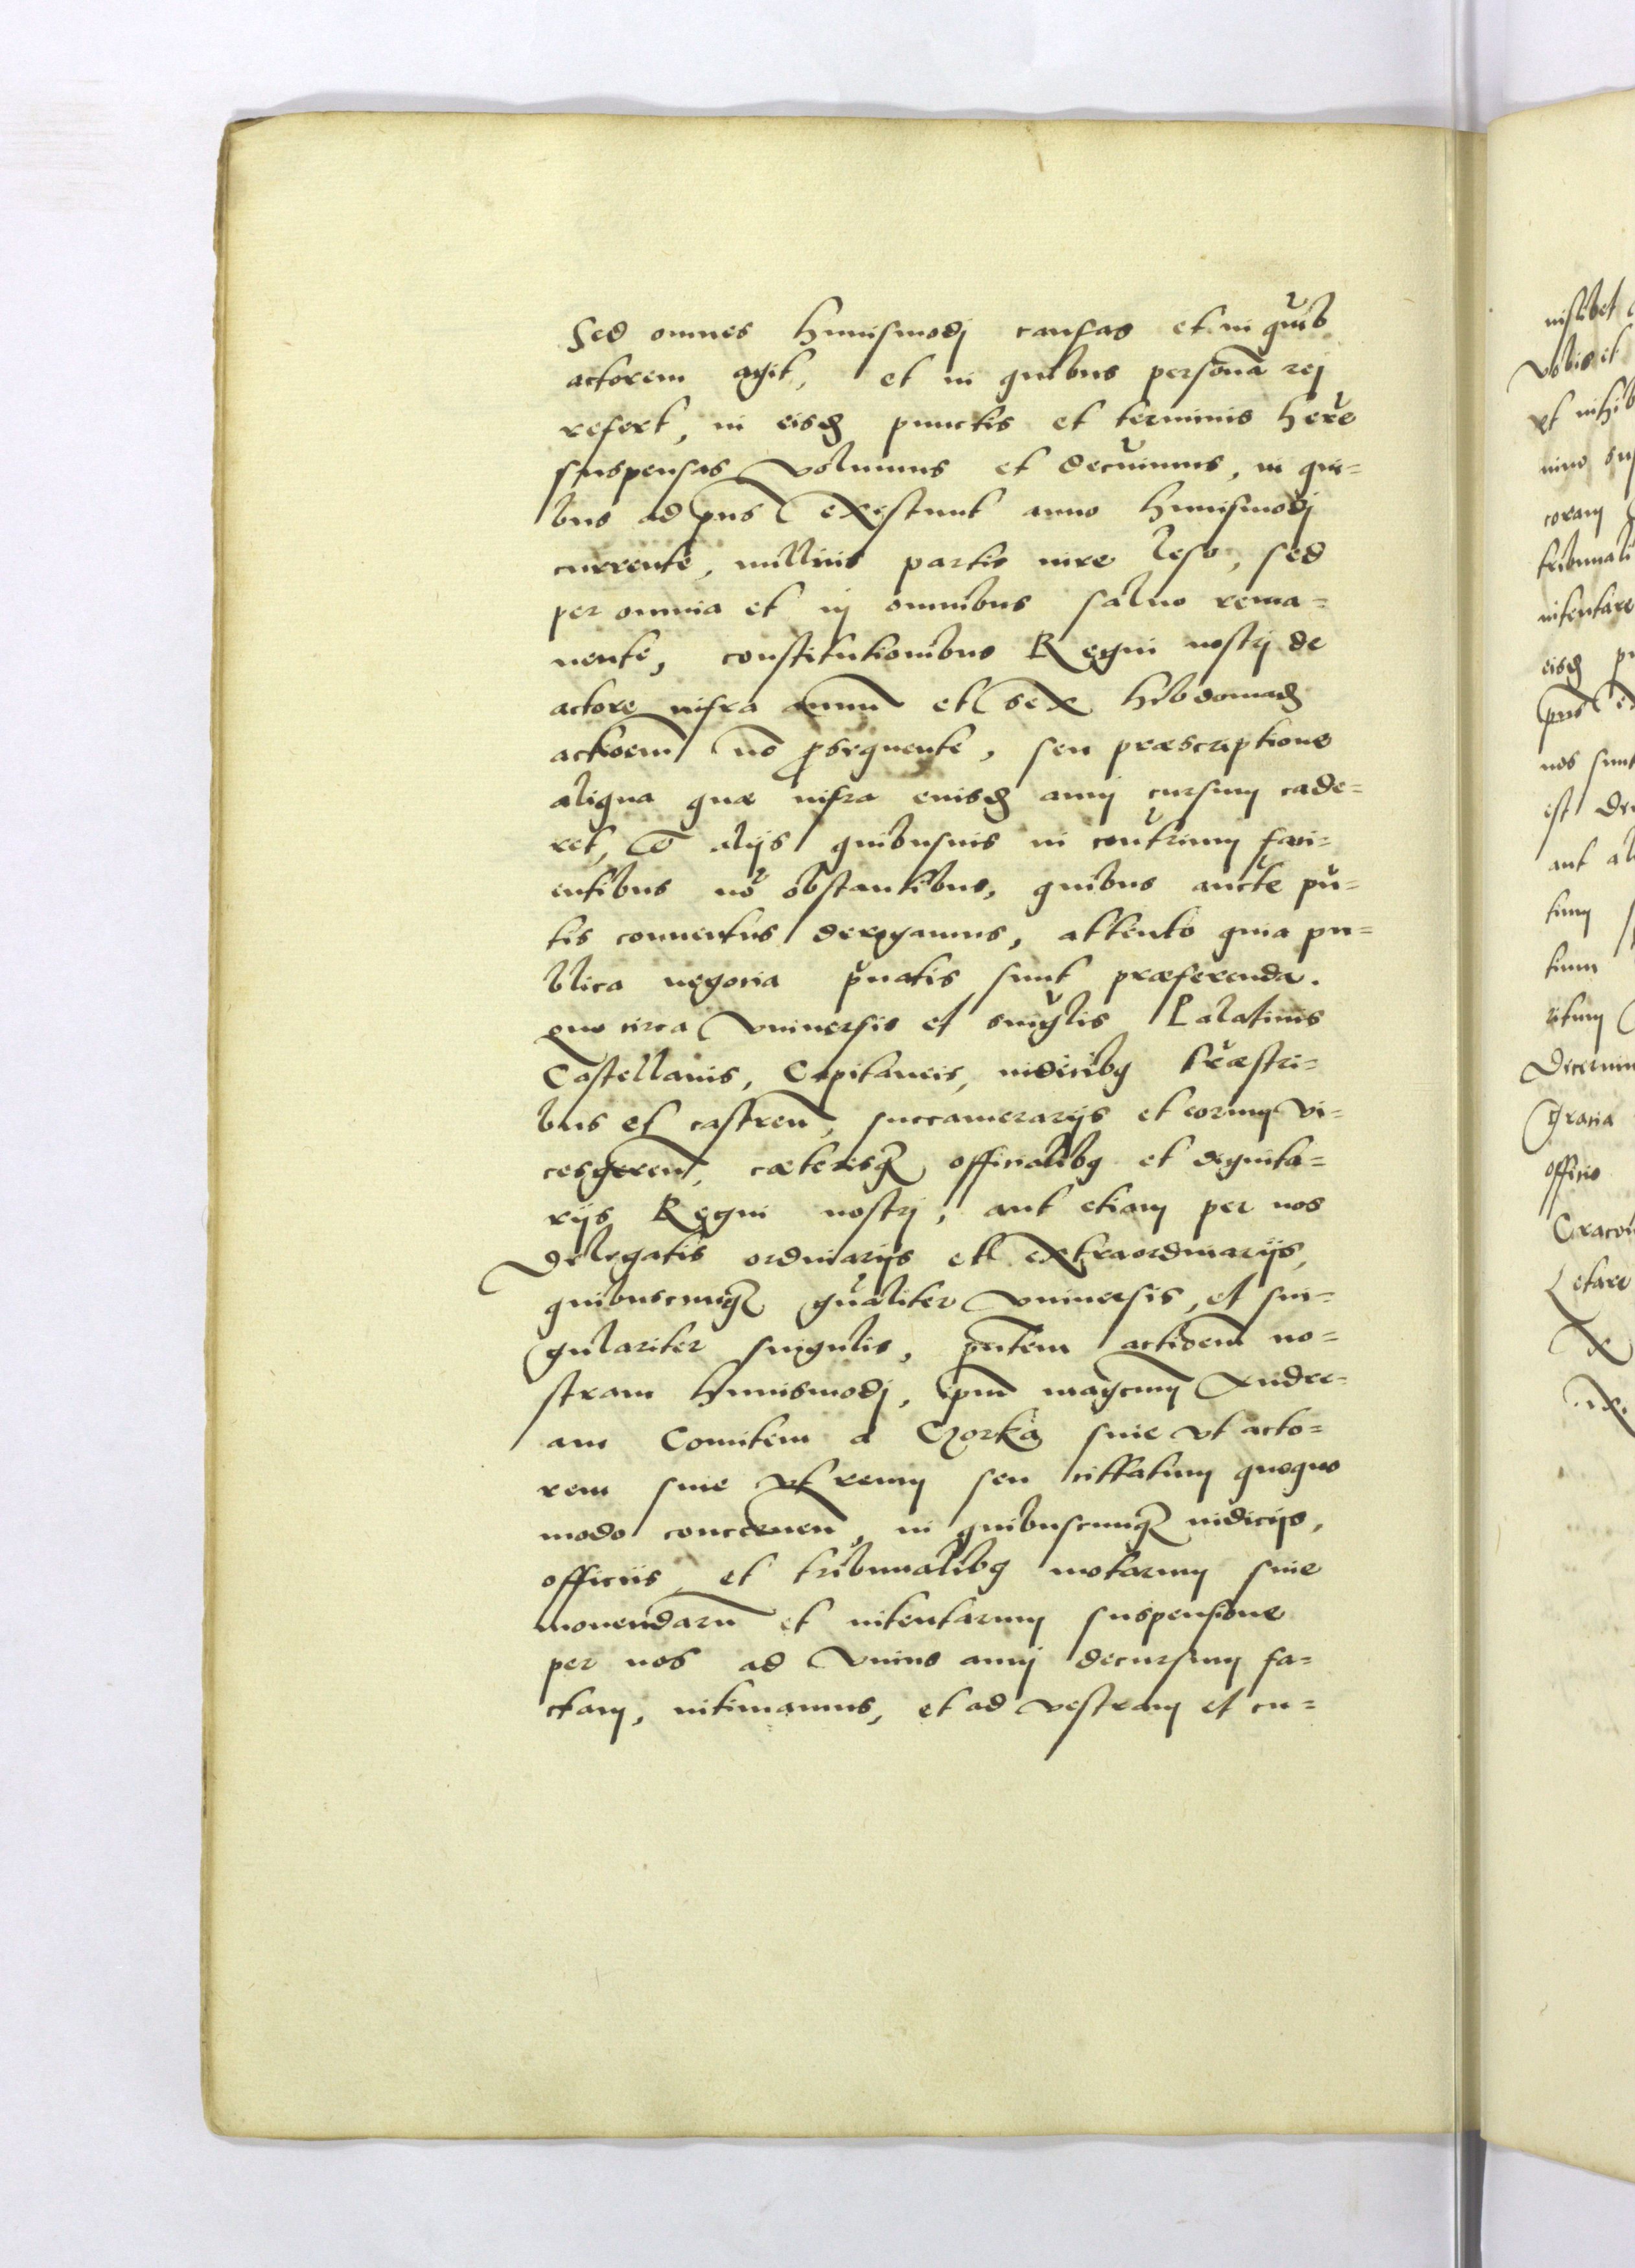 Sed omnes huiusmodj causas et in quib
actorem agit, et in quibus personã rej
refert, in eisđ punctis et terminis herẽ
suspensas volumus et decũimus, in qui=
bus ad pñs existunt anno huiusmodj
currente, nullius partis iure leso, sed
per omnia et in omnibus saluo rema=
nente, constitutionibus Regni nostrj de
actore infra annũ et sex hebdomađ
actioem nõ prosequente, seu præscriptione
aliqua quæ infra euisđ annj cursum cade=
ret, et alijs quibusuis in contrium faci=
entibus nõ obstantibus, quibus aucte pñ=
tis conuentus derogamus, attento quia pu=
blica negocia priuatis sunt præferenda.
quo circa vniuersis et singlis Palatinis
Castellanis, Capitaneis, iudicibq terræstri=
bus et castreñ, succamerarijs et eorum vi=
cesgereñ, cæterisq officialibq et dignita=
rijs Regni nostrj, aut etiam per nos
delegatis ordinarijs et extraordinarijs,
quibuscunq qualiter vniuersis, et sin=
gulariter singulis, pñtem actioem no=
stram huiusmodj, ipm magcum Andre=
am Comitem a Gorka siue vt acto=
rem siue vt reum seu cittatum quoquo
modo concerneñ, in quibuscunq iudicijs,
officiis et tribunalibq motarum siue
mouendarũ et intentarum suspensione
per nos ad vnius annj decursum fa=
ctam, intimamus, et ad vestram et cu=

nislibet
vobis et
vt nihil
nino sus
coram
tribunali
intentare
eisđ pu
pñs ex
nos sunt
est de
aut al
tum
tium
ritum
Decernim
Gratia
officio
Cracou
Letare
X
ix.